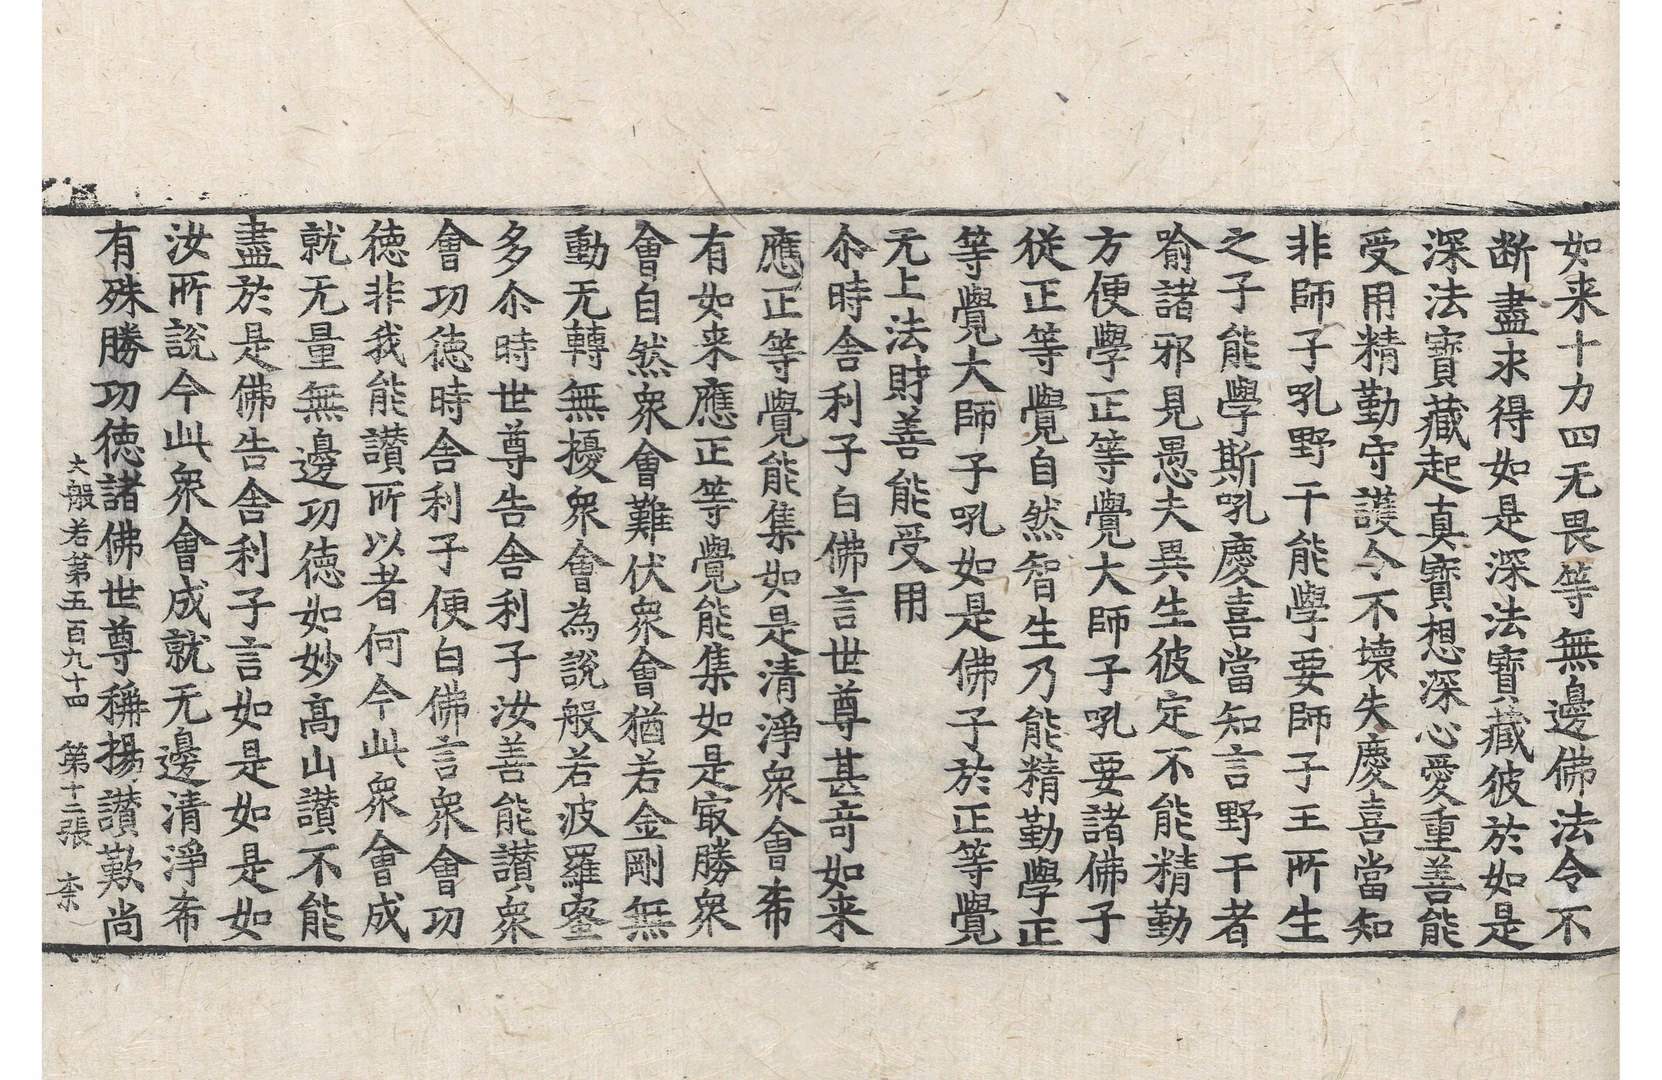 如来十力四无畏等無邊佛法令不
断盡求得如是深法寶藏彼於如是
深法寶藏起真寶想深心愛重善能
受用精勤守護令不壞失慶喜當知
非師子吼野干能學要師子王所生
之子能學斯吼慶喜當知言野干者
喻諸邪見愚夫異生彼定不能精勤
方便學正等覺大師子吼要諸佛子
従正等覺自然智生乃能精勤學正
等覺大師子吼如是佛子於正等覺
无上法財善能受用
尒時舍利子白佛言世尊甚奇如来
應正等覺能集如是清淨衆會希
有如来應正等覺能集如是㝡勝衆
會自然衆會難伏衆會猶若金剛無
動无轉無擾衆會為說般若波羅蜜
多尒時世尊告舍利子汝善能讃衆
會功徳時舍利子便白佛言衆會功
徳非我能讃所以者何今此衆會成
就无量無邊功徳如妙高山讃不能
盡於是佛告舍利子言如是如是如
汝所說今此衆會成就无邊清淨希
有殊勝功徳諸佛世尊稱揚讃歎尚
大般若第五百九十四 第十二張 柰